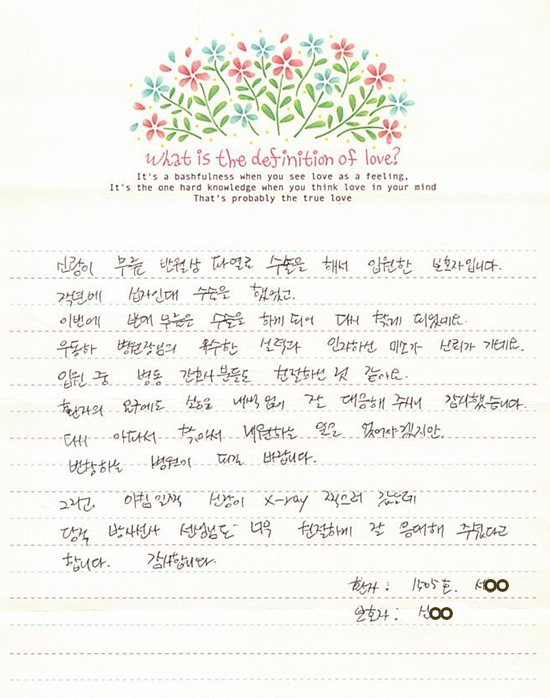 What is the definition of love?
It's a bashfulness when you see love as a feeling,
It's the one hard knowledge when you think love in your mind
That's probably the true love
신랑이 무릎 반월상 파열로 수술을 해서 입원한 보호자입니다.
작년에 십자인대 수술을 했었고.
이번에 반대 무릎을 수술을 하게 되어 다시 찾게 되었네요.
우동하 병원장님의 우수한 실력과 인자하신 미소가 신뢰가 가네요.
입원 중 병동 간호사분들도 친절하신 것 같아요.
환자의 요구에도 싫음을 내색 없이 잘 대응해 주셔서 감사했습니다.
다시 아파서 찾아서 내원하는 일은 없어야겠지만.
번창하는 병원이 되길 바랍니다.
그리고. 아침 일찍 신랑이 x-ray 찍으러 갔는데
당직 방사선사 선생님도 너무 친절하게 잘 응대해 주셨다고
합니다. 감사합니다.
환자 : 1505호. 서OO
보호자 : 신OO